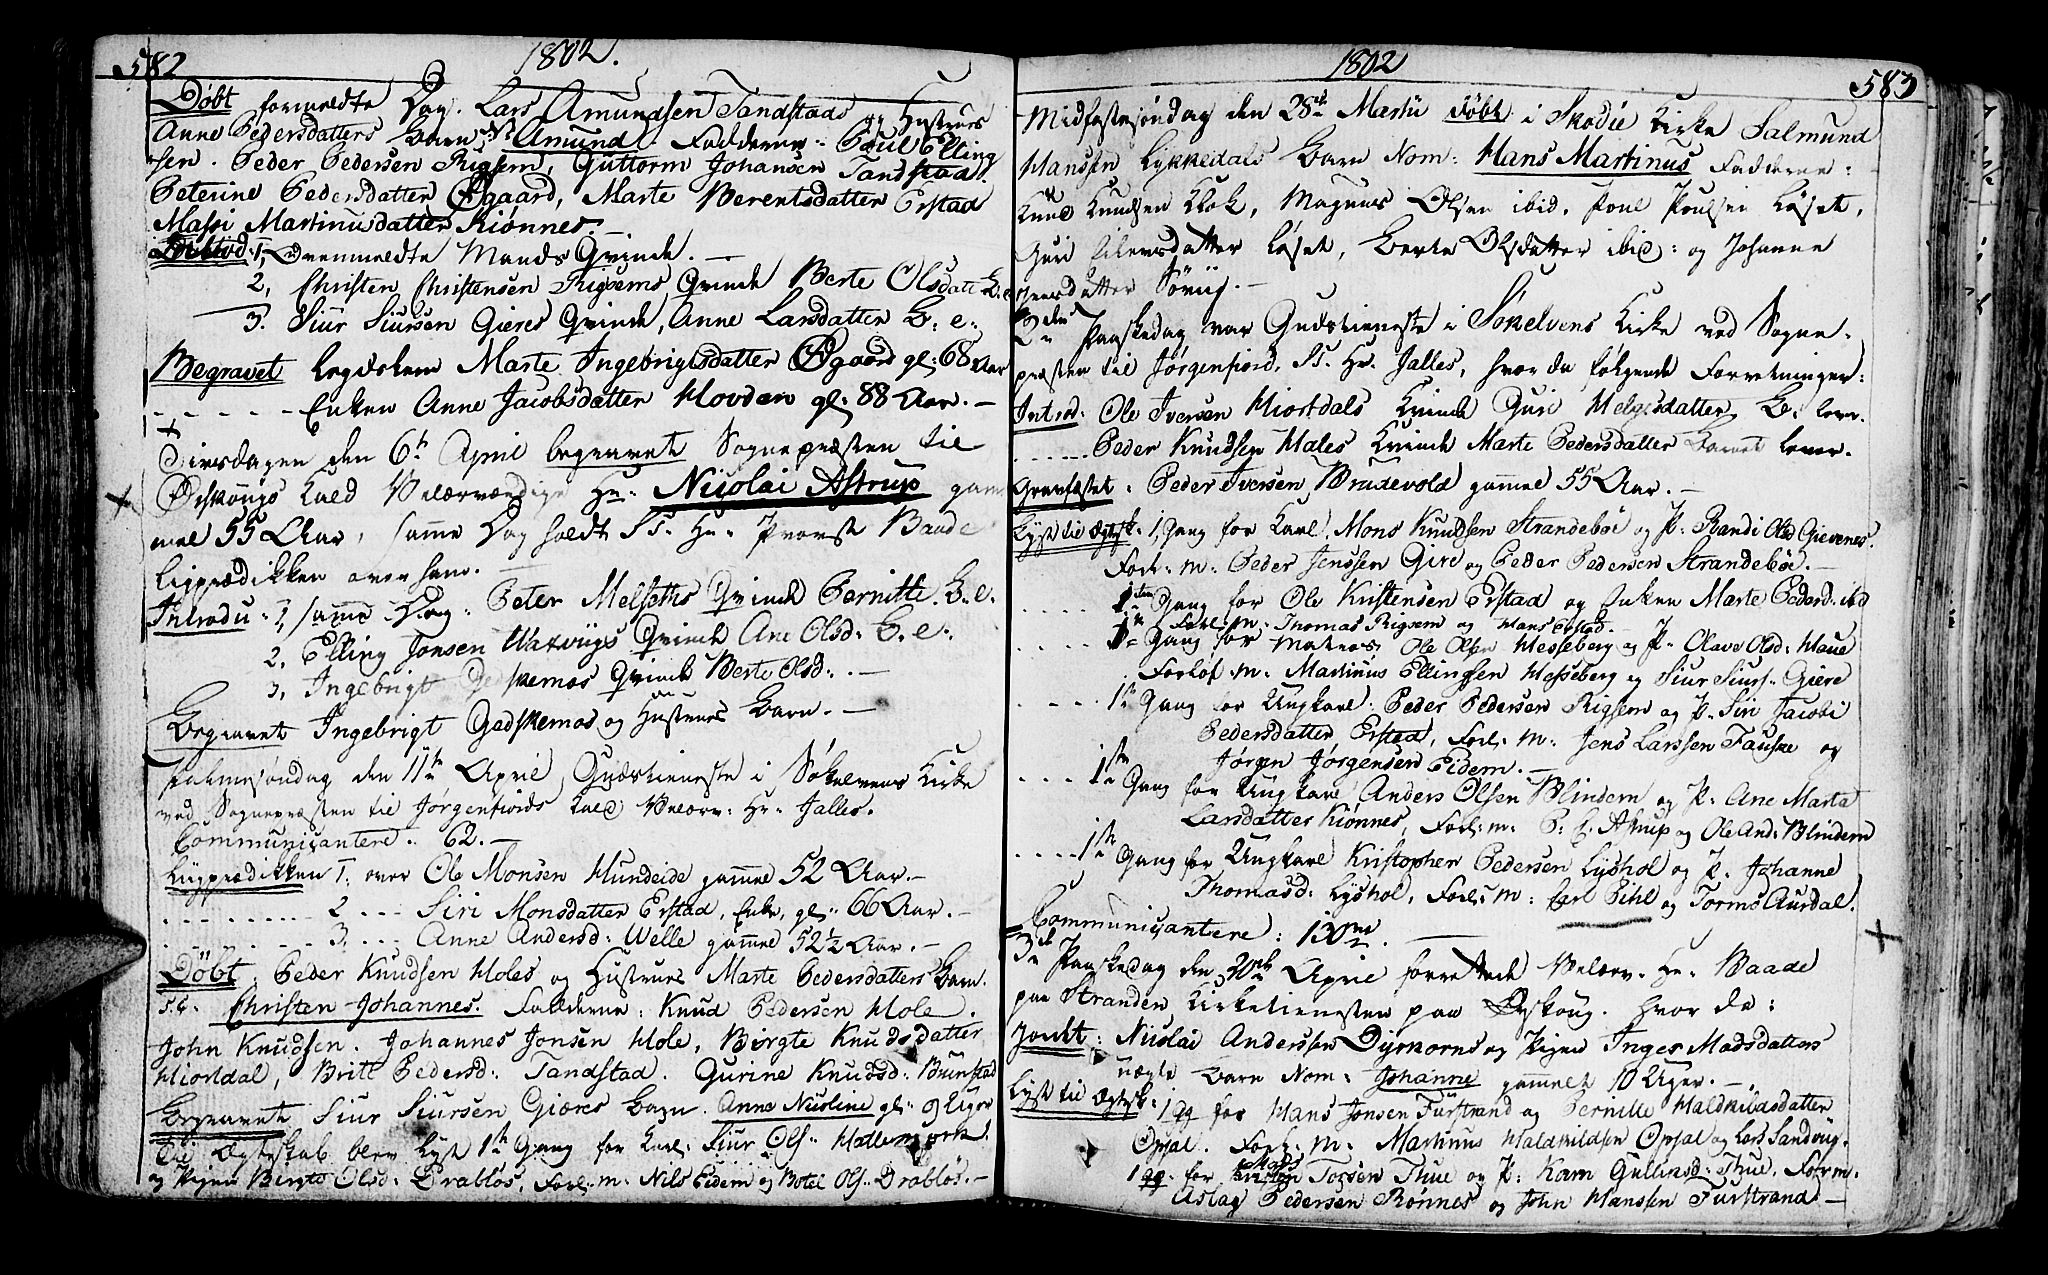 582
1802.
Døbt formeldte Dag. Lars Amundsen Tandstads og Hustrues
Anne Pedersdatters Barn Nom: Amund. Fadderne: Poul Elling
sen. Peder Pedersen Rigsem, Guttorm Johansen Tandstad.
Peterine Pedersdatter Øgaard, Marte Berentsdatter Erstad
Massi Martinusdatter Kiønnes.
Introd: 1, Ovenmeldte Mands Qvinde.
2, Christen Christensen Rigsems Qvinde Berte Olsdatt: B: e
3. Siur Siursen Gieres Qvinde, Anne Larsdatter B: e:
Begravet Marte Ingebrigtsdatter Øgaard gl: 68 Aar
- - - - - Enken Anne Jacobsdatter Hovden gl: 88 Aar.
Tirsdagen den 6te April begravet Sognepræsten til
Ørskougs Kald Velærværdige Hr: Nicolai Astrup gam
mel 55 Aar, samme Dag holdt Hr: Provst Baade
Ligprædikken over ham.
Introdu: 1, samme Dag: Peter Melseths Qvinde Pernitte. B: e:
2, Elling Jonsen Qvinde Ane Olsd: B: e:
3, Ingebrigt Gadskemos Qvinde Berte Olsd:
Begravet Ingebrigt Gadskemos og Hustrues Barn.
Palmesøndag den 11te April Gudstieneste i Søkelvens Kirke
ved Sognepræsten til Jørgenfiords Kald Velærv: Hr: Jalles.
Communicantere: 62.
Liigprædikken 1: over Ole Monsen Hundeide gammel 52 Aar.
- - - 2 - - - Siri Monsdatter Erstad, Enke, gl: 66 Aar.
- - - 3, - - - Anne Andersd: Welle gammel 52 1/2 Aar.
Døbt: Peder Knudsen Holes og Hustrues Marte Pedersdatters Barn.
Christen Johannes. Fadderne: Knud Pedersen Hole.
John Knudsen. Johannes Jonsen Hole, Birgte Knudsdatter
Hiortdal, Britt Pedersd: Tandstad. Gurine Knudsd:
Begravet Siur Siursen Gieres Barn. Anne Nicoline gl: 9 Uger
Til Ægteskab blev Lyst 1te Gang for Karl: Siur Ols:
og Pigen Birgte Olsd: Drabløs, Forl: m: Nils Eidem og Botel Ols: Drabløs.
1802
583
Midfastesøndag den 28de Martii Døbt i Skodie Kirke Salmund
Hansen Lykkedals Barn Nom: Hans Martinus Fadderne:
Knud Knudsen Klok, Magnus Olsen ibid, Poul Poulsen Løset,
Guri Løset, Berte Olsdatter ibid: og Johanne
2den Paaskedag var Gudstieneste i Søkelvens Kirke ved Sogne-
præsten til Jørgenfiord, Hr: Jalles, hvor da følgende Forretninger:
Introd: Ole Iversen Hiortdals Kvinde Guri Helgesdatter, B: lever
- - - Peder Knudsen Hales Kvinde Marte Pedersdatter Barnet lever.
Gravfæstet: Peder Iversen Brudevold gammel 55 Aar.
Lyst til Ægtesk: 1, Gang for Karl. Mons Knudsen Strandebøe og P: Randi Olsd Gievenes.
Forl: m: Peder Jenssen Gire og Peder Pedersen Strandebøe.
- - - 1te Gang for Ole Kristensen Erstad og Enken Marte Pedersd: ibd
Forl: m: Thomas Rigsem og Hans Erstad.
- - - 1te Gang for Ole Olsen Hesseberg og P: Olave Olsd: Haue
Forlof m: Martinus Ellingsen Hesseberg og Siur Siurs: Giere
- - - 1te Gang for Ungkarl: Peder Pedersen Rigsem og P. Siri Jacobi
Pedersdatter Erstad, Forl: m: Jens Larssen Fauske og
Jørgen Jørgensen Eidem.
- - - 1te Gang for Ungkarl Anders Olsen Blindem og P. Ane Marta
Larsdatter Kiønnes, Forl: m: P: C. Astrup og Ole And: Blindem
- - - 1te Gang for Ungkarl Kristopher Pedersen Lyshol og P. Johanne
Thomasd: Lyshol, Forl: m: Carl Pihl og Tormo Aursdal.
Communicantere: 130
3de Paaskedag den April forrettede Velærv: Hr: Baade
paa Stranden Kirketienesten paa Ørskoug. hvor da:
Jordt: Nicolai Anderssen Dyrkorns og Pigen Inger Madsdatters
uægte Barn Nom: Johanne gammelt 10 Uger.
Lyst til Ægtesk: 1 gg for Hans Jonsen Furstrand og Pernille
Opsal. Forl: m: Martinus Opsal og Lars Sandvig.
1 gg. for Mads Torsen Thue og P: Karn Gullesd: Thue. For m:
Aslag Pedersen Rønnes og John Hanssen Furstrand